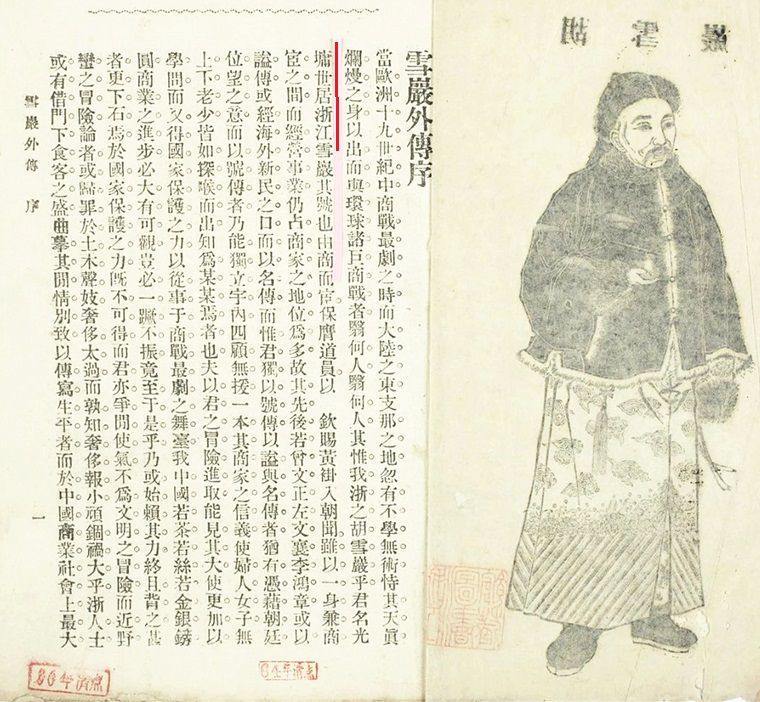 胡雪巖
雪巖外傳序
當歐洲十九世紀中商戰最劇之時而大陸之東支那之地忽有不學無術恃其天眞
爛熳之身以出而與環球諸巨商戰者翳何人翳何人其惟我浙之胡雪巖乎君名光
墉世居浙江雪巖其號也由商而宦保膺道員以 欽賜黃褂入朝聞雖以一身兼商
宦之間而經營事業仍占商家之地位爲多故其先後若曾文正左文襄李鴻章或以
謚傳或經海外新民之口而以名傳而惟君獨以號傳以謚與名傳者猶有憑藉朝廷
位望之意而以號傳者乃能獨立宇內四顧無援一本其商家之信義使婦人女子無
上下老少皆如探喉而出知爲某某焉者也夫以君之冒險進取能見其大使更加以
學問而又得國家保護之力以從事于商戰最劇之舞臺我中國若茶若絲若金銀鎊
圓商業之進步必大有可觀豈必一蹶不振竟至于是乎乃或始賴其力終且背之甚
者更下石焉於國家保護之力旣不可得而君亦爭閒使氣不爲文明之冒險而近野
蠻之冒險論者或歸罪於土木聲妓奢侈太過而孰知奢侈報小頑錮禍大乎浙人士
或有借門下食客之盛曲摹其閒情別致以傳寫生平者而於中國商業社會上最大
雪巖外傳 序 一
圖書